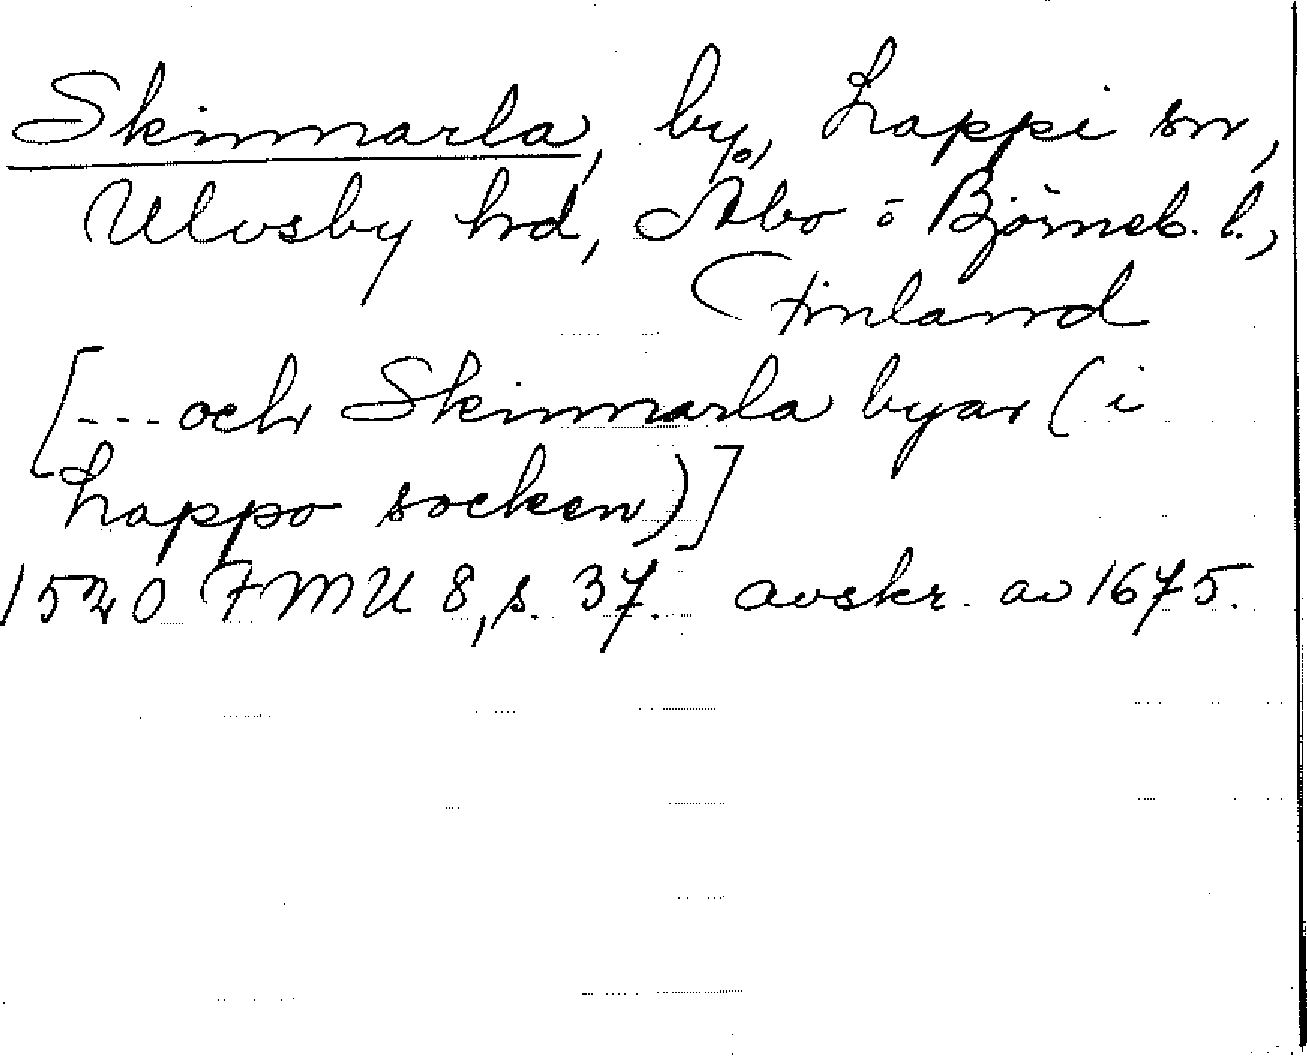 Skinnarla, by, Lappi sn,
Ulvsby hd, Åbo o Björneb. l.,
Finland
[--- och Skinnarla byar (i
Lappo socken)]
1520 FMU 8, s. 37. avskr. av 1675.